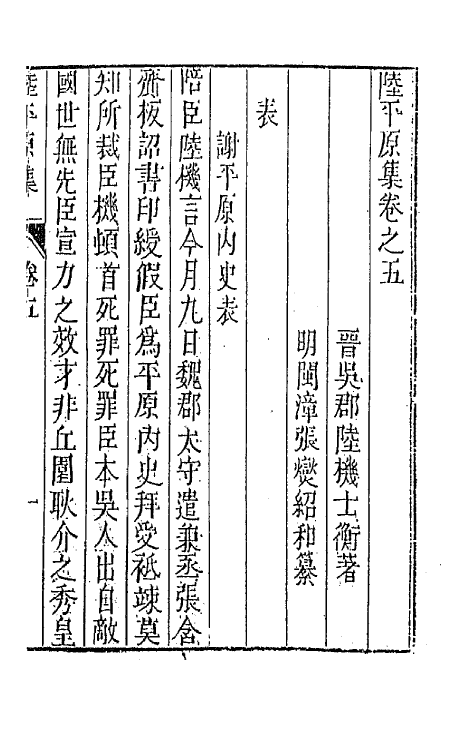 陸平原集卷之五
晉吳郡陸機士衡著
明閩漳張燮紹和纂
表
謝平原內史表
陪臣陸機言今月九日魏郡太守遣兼丞張含
齎板詔書印綬假臣為平原內史拜受祗竦莫
知所裁臣機頓首死罪死罪臣本吳人出自敵
國世無先臣宣力之效才非丘園耿介之秀皇
陸平原集
卷五
一